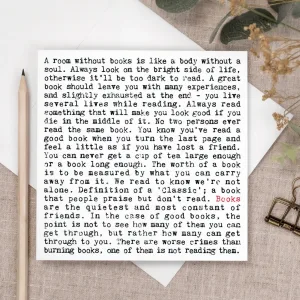 A room without books is like a body without a
soul. Always look on the bright side of life,
otherwise it'll be too dark to read. A great
book should leave you with many experiences,
and slightly exhausted at the end - you live
several lives while reading. Always read
something that will make you look good if you
die in the middle of it. No two persons ever
read the same book. You know you've read a
good book when you turn the last page and
feel a little as if you have lost a friend.
You can never get a cup of tea large enough
or a book long enough. The worth of a book
is to be measured by what you can carry
away from it. We read to know we're not
alone. Definition of a 'Classic'; a book
that people praise but don't read. Books
are the quietest and most constant of
friends. In the case of good books, the
point is not to see how many of them you can
get through, but rather how many can get
through to you. There are worse crimes than
burning books, one of them is not reading them.